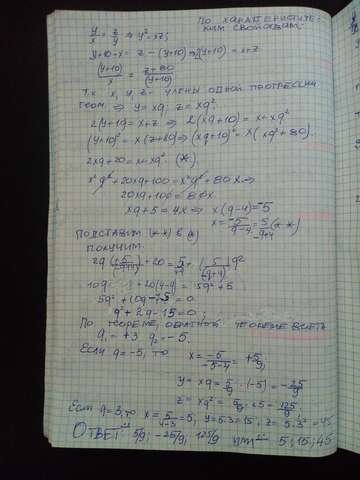 y/x = z/y ⇒ y² = xz;
по характеристическим свойствам
y+10-x = z - (y+10) ⇒ 2(y+10) = x+z
(y+10)/x = (z+80)/(y+10)
Т.к x, y, z - члены одной прогрессии
геом. ⇒ y = xq; z = xq².
2(y+10) = x+z ⇒ 2(xq+10) = x+xq²
(y+10)² = x(z+80) ⇒ (xq+10)² = x(xq²+80).
2xq+20 = x+xq² (*)
x²q²+20xq+100 = x²q²+80x ⇒
20xq+100 = 80x
xq+5 = 4x ⇒ x(q-4) = -5
x = -5/(q-4) = 5/(-q+4) (**)
Подставим (**) в (*)
получим:
5q²+10q-75 = 0
q²+2q-15 = 0;
По теореме, обратной теореме Виета
q₁ = +3 q₂ = -5.
Если q = -5, то x = -5/(-5-4) = +5/9;
y = xq = 5/9 · (-5) = -25/9
z = xq² = 5/9 · 25 = 125/9.
Если q = 3, то x = 5/(4-3) = 5, y = 5·3 = 15; z = 5·3² = 45
Ответ: 5/9; -25/9; 125/9 или 5; 15; 45